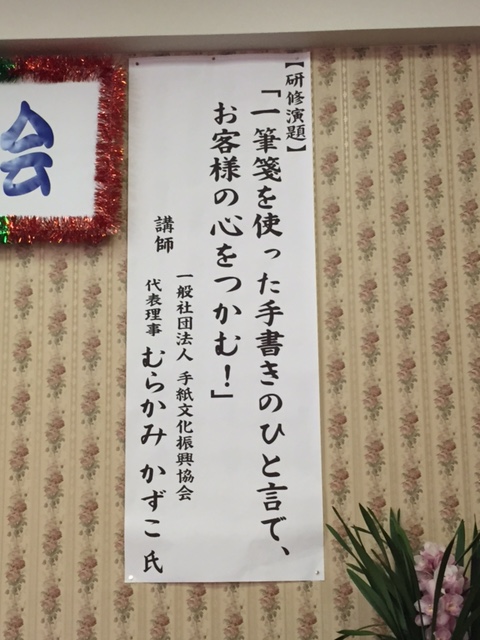 【研修演題】
「一筆箋を使った手書きのひと言で、
お客様の心をつかむ！」
講師
一般社団法人 手紙文化振興協会
代表理事 むらかみ かずこ 氏
会